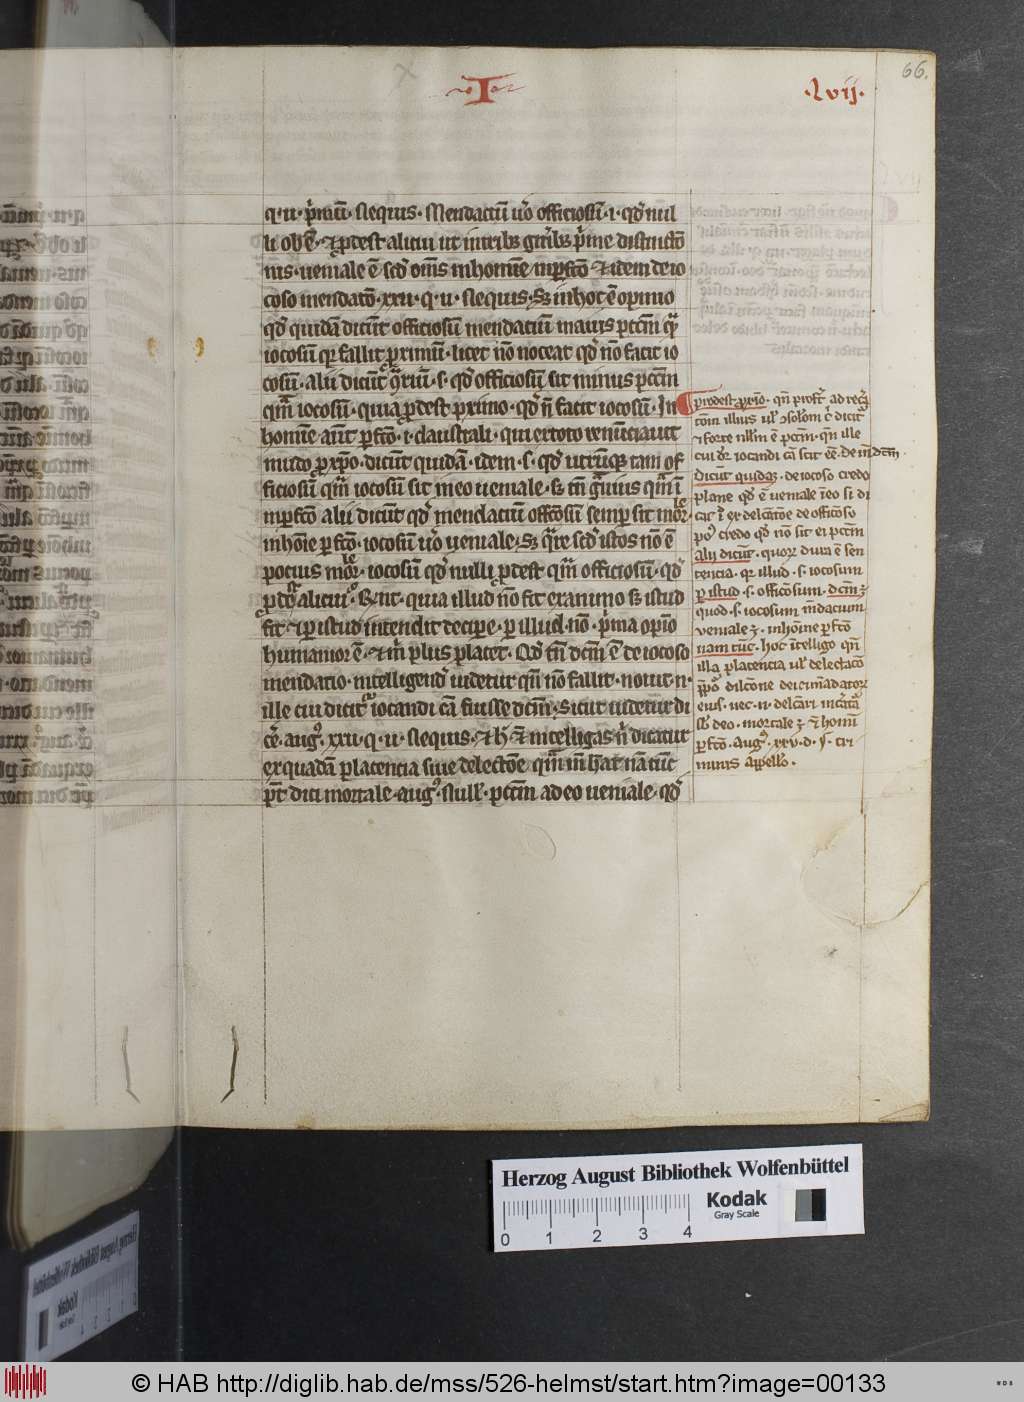 I
.Lvij.
66.
q. ii. p̄mū. Neq̇uis. Mendaciū ỻo officiosū. i. qđ nul
li obē. ⁊ ꝓdest alicui ut in tribꝯ gn̄ibꝯ p̄me distinctō
nis. ueniale ē scđ om̄s in homīe inꝑfcō. ⁊ idem de io
coso mendatō. xxii. q. ii. Neq̇uis. Sꝫ in hoc ē opinio
qđ quidā dicūt officiosū mendatiū maius pctm̄ qͣ
iocosū qr fallit ꝓximū. licet nō noceat qđ nō facit io
cosū. Alii dicūt ꝯ̄riū. s. qđ officiosū sit minus pctm̄
qͣm iocosū. quia ꝓdest proximo. qđ n̄ facit iocosū. In
homīe aūt ꝑfcō. i. claustrali. qui ex toto renūciauit
mūdo ꝓ xp̄o. dicūt quidā. idem. s. qđ utrūqꝫ tam of
ficiosū qͣm iocosū sit in eo ueniale. sꝫ tn̄ gͣuius qͣm ī
inꝑfcō alii dicūt qđ mendacium offcōsū semꝑ sit morͣle
in hoīe ꝑfcō. iocosū ỻo ueniale. Sꝫ qͣre scđ istos nō ē
pocius morͣle. iocosū qđ nulli ꝓdest qͣm officiosū. qđ
ꝓdest alicui. Rn̄t. quia illud nō fit ex animo sꝫ istud
fit. ⁊ ꝑ istud intendit decipe. ꝑ illud nō. p̄ma opīo
humanior ē. ⁊ m̄ plus placet. Qđ tn̄ dcm̄ ē de iocoso
mendatio. intelligend̄ uidetur qn̄ nō fallit. nouit .n.
ille cui dicitr iocandi cā fuisse dcm̄. Sicut uidetur di
cē. augꝯ. xxii. q. ii. Neq̇uis. ⁊ h̄ ⁊ intelligas n̄ dicatur
ex quadā placencia siue delectōe qͣm in h̄at nā tūc
pt̄ dici mortale. augꝯ. Null. pctm̄ adeo ueniale. qđ
prodest ꝓxīo. qn̄ profit̄ ad rec̄a
tōm illius ul ꝯsolom̄ c̄ dicit̄
⁊ forte nllm ē pctm̄. qn̄ ille
cui dr iocandi cā scit eē. de m̄dcm̄.
Dicūt quidā. de iocoso credo
plane qđ ē ueniale in eo si di
cat̄ ex delcātōe de officoso
po credo qđ nō sit ei pctm̄
Alij dicūt. quor dura ē sen
tencia. qr illud .s. iocosum
ꝑ istud .s. officōsum. dcm̄ ē
quod .s. iocosum m̄dacium
ueniale ē. in hoīne ꝑfcō
nam tūc. hoc ītelligo qn̄
illa placencia ul delectacō
p̄po dilcōne dei cimādatorͣ
eius. nec .n. delcāri in cātͣ
sb deo. mortale ē ⁊ homī
ꝑfcō. Aug. xxv. d. s. cri
minis appello.
Herzog August Bibliothek Wolfenbüttel
Kodak
Gray Scale
0 1 2 3 4
© HAB http://diglib.hab.de/mss/526-helmst/start.htm?image=00133